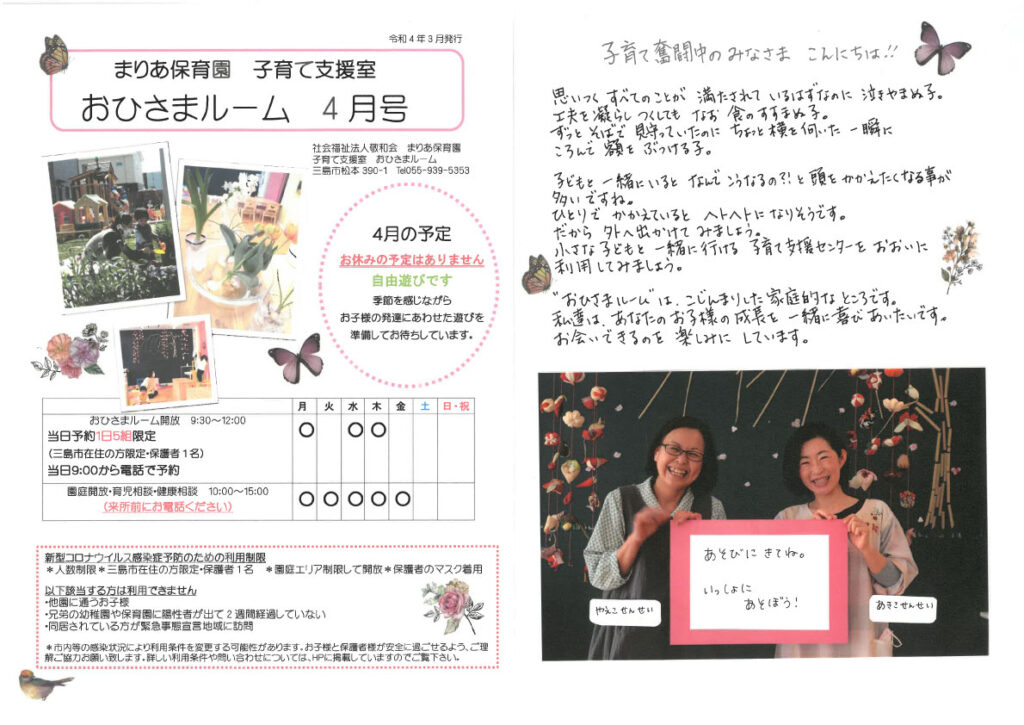 令和4年3月発行
まりあ保育園 子育て支援室
おひさまルーム 4月号
社会福祉法人敬和会 まりあ保育園
子育て支援室 おひさまルーム
三島市松本390-1 Tel055-939-5353
4月の予定
お休みの予定はありません
自由遊びです
季節を感じながら
お子様の発達にあわせた遊びを
準備してお待ちしています。
月 火 水 木 金 土 日・祝
おひさまルーム開放 9:30～12:00
当日予約1日5組限定
(三島市在住の方限定・保護者1名)
当日9:00から電話で予約
○ ○ ○
園庭開放・育児相談・健康相談 10:00～15:00
(来所前にお電話ください)
○ ○ ○ ○ ○
新型コロナウイルス感染症予防のための利用制限
＊人数制限＊三島市在住の方限定・保護者1名 ＊園庭エリア制限して開放＊保護者のマスク着用
以下該当する方は利用できません
・他園に通うお子様
・兄弟の幼稚園や保育園に陽性者が出て2週間経過していない
・同居されている方が緊急事態宣言地域に訪問
＊市内等の感染状況により利用条件を変更する可能性があります。お子様と保護者様が安全に過ごせるよう、ご理
解ご協力お願い致します。詳しい利用条件や問い合わせについては、HPに掲載していますのでご覧下さい。
子育て奮闘中のみなさま こんにちは!!
思いつく すべてのことが 満たされて いるはずなのに 泣きやまぬ子。
工夫を凝らし つくしても なお 食のすすまぬ子。
ずっと そばで 見守っていたのに ちょっと横を向いた 一瞬に
ころんで 額を ぶつける子。
子どもと 一緒にいると なんで こうなるの?! と 頭を かかえたくなる事が
多いですね。
ひとりで かかえていると ヘトヘトになりそうです。
だから 外へ出かけて みましょう。
小さな子どもと 一緒に行ける 子育て支援センターを おおいに
利用してみましょう。
"おひさまルーム"は、こじんまりした 家庭的な ところです。
私達は、あなたの お子様の 成長を 一緒に喜びあいたいです。
お会いできるのを 楽しみに しています。
あそびに きてね。
いっしょに
あそぼう!
やえこせんせい
あきこせんせい